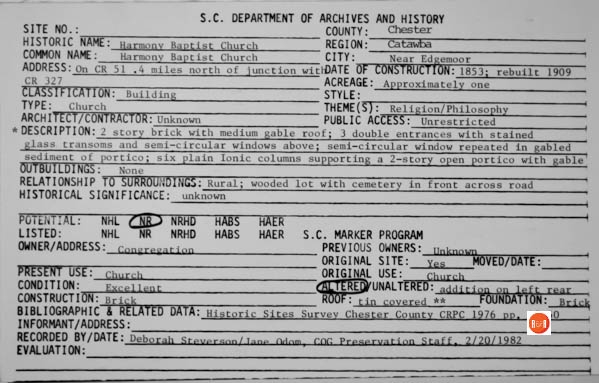 S.C. DEPARTMENT OF ARCHIVES AND HISTORY
SITE NO.: COUNTY: Chester
HISTORIC NAME: Harmony Baptist Church REGION: Catawba
COMMON NAME: Harmony Baptist Church CITY: Near Edgemoor
ADDRESS: On CR 51 .4 miles north of junction with DATE OF CONSTRUCTION: 1853; rebuilt 1909
CR 327 ACREAGE: Approximately one
CLASSIFICATION: Building STYLE:
TYPE: Church THEME(S): Religion/Philosophy
ARCHITECT/CONTRACTOR: Unknown PUBLIC ACCESS: Unrestricted
* DESCRIPTION: 2 story brick with medium gable roof; 3 double entrances with stained
glass transoms and semi-circular windows above; semi-circular window repeated in gabled
sediment of portico; six plain Ionic columns supporting a 2-story open portico with gable
OUTBUILDINGS: None
RELATIONSHIP TO SURROUNDINGS: Rural; wooded lot with cemetery in front across road
HISTORICAL SIGNIFICANCE: unknown
POTENTIAL: NHL NR NRHD HABS HAER
LISTED: NHL NR NRHD HABS HAER S.C. MARKER PROGRAM
OWNER/ADDRESS: Congregation PREVIOUS OWNERS: Unknown
ORIGINAL SITE: Yes MOVED/DATE:
PRESENT USE: Church ORIGINAL USE: Church
CONDITION: Excellent ALTERED/UNALTERED: addition on left rear
CONSTRUCTION: Brick ROOF: tin covered ** FOUNDATION: Brick
BIBLIOGRAPHIC & RELATED DATA: Historic Sites Survey Chester County CRPC 1976 pp.
INFORMANT/ADDRESS:
RECORDED BY/DATE: Deborah Steverson/Jane Odom, COG Preservation Staff, 2/20/1982
EVALUATION: